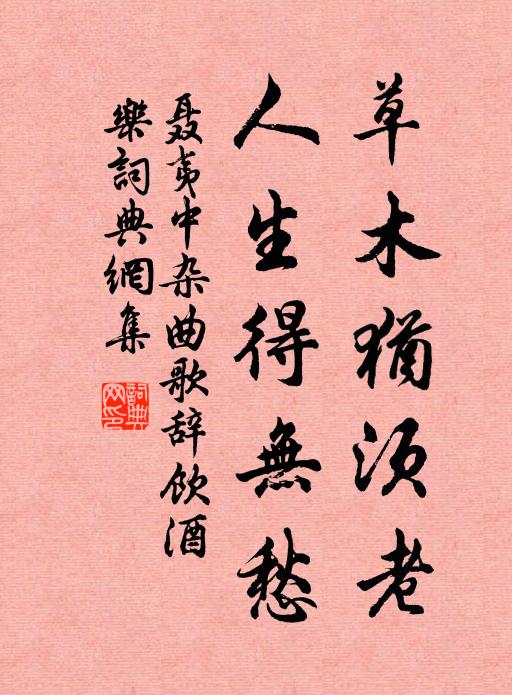 草木猶須老
人生得無愁
聂夷中杂曲歌辞饮酒
樂詞典網集
詞典
网印